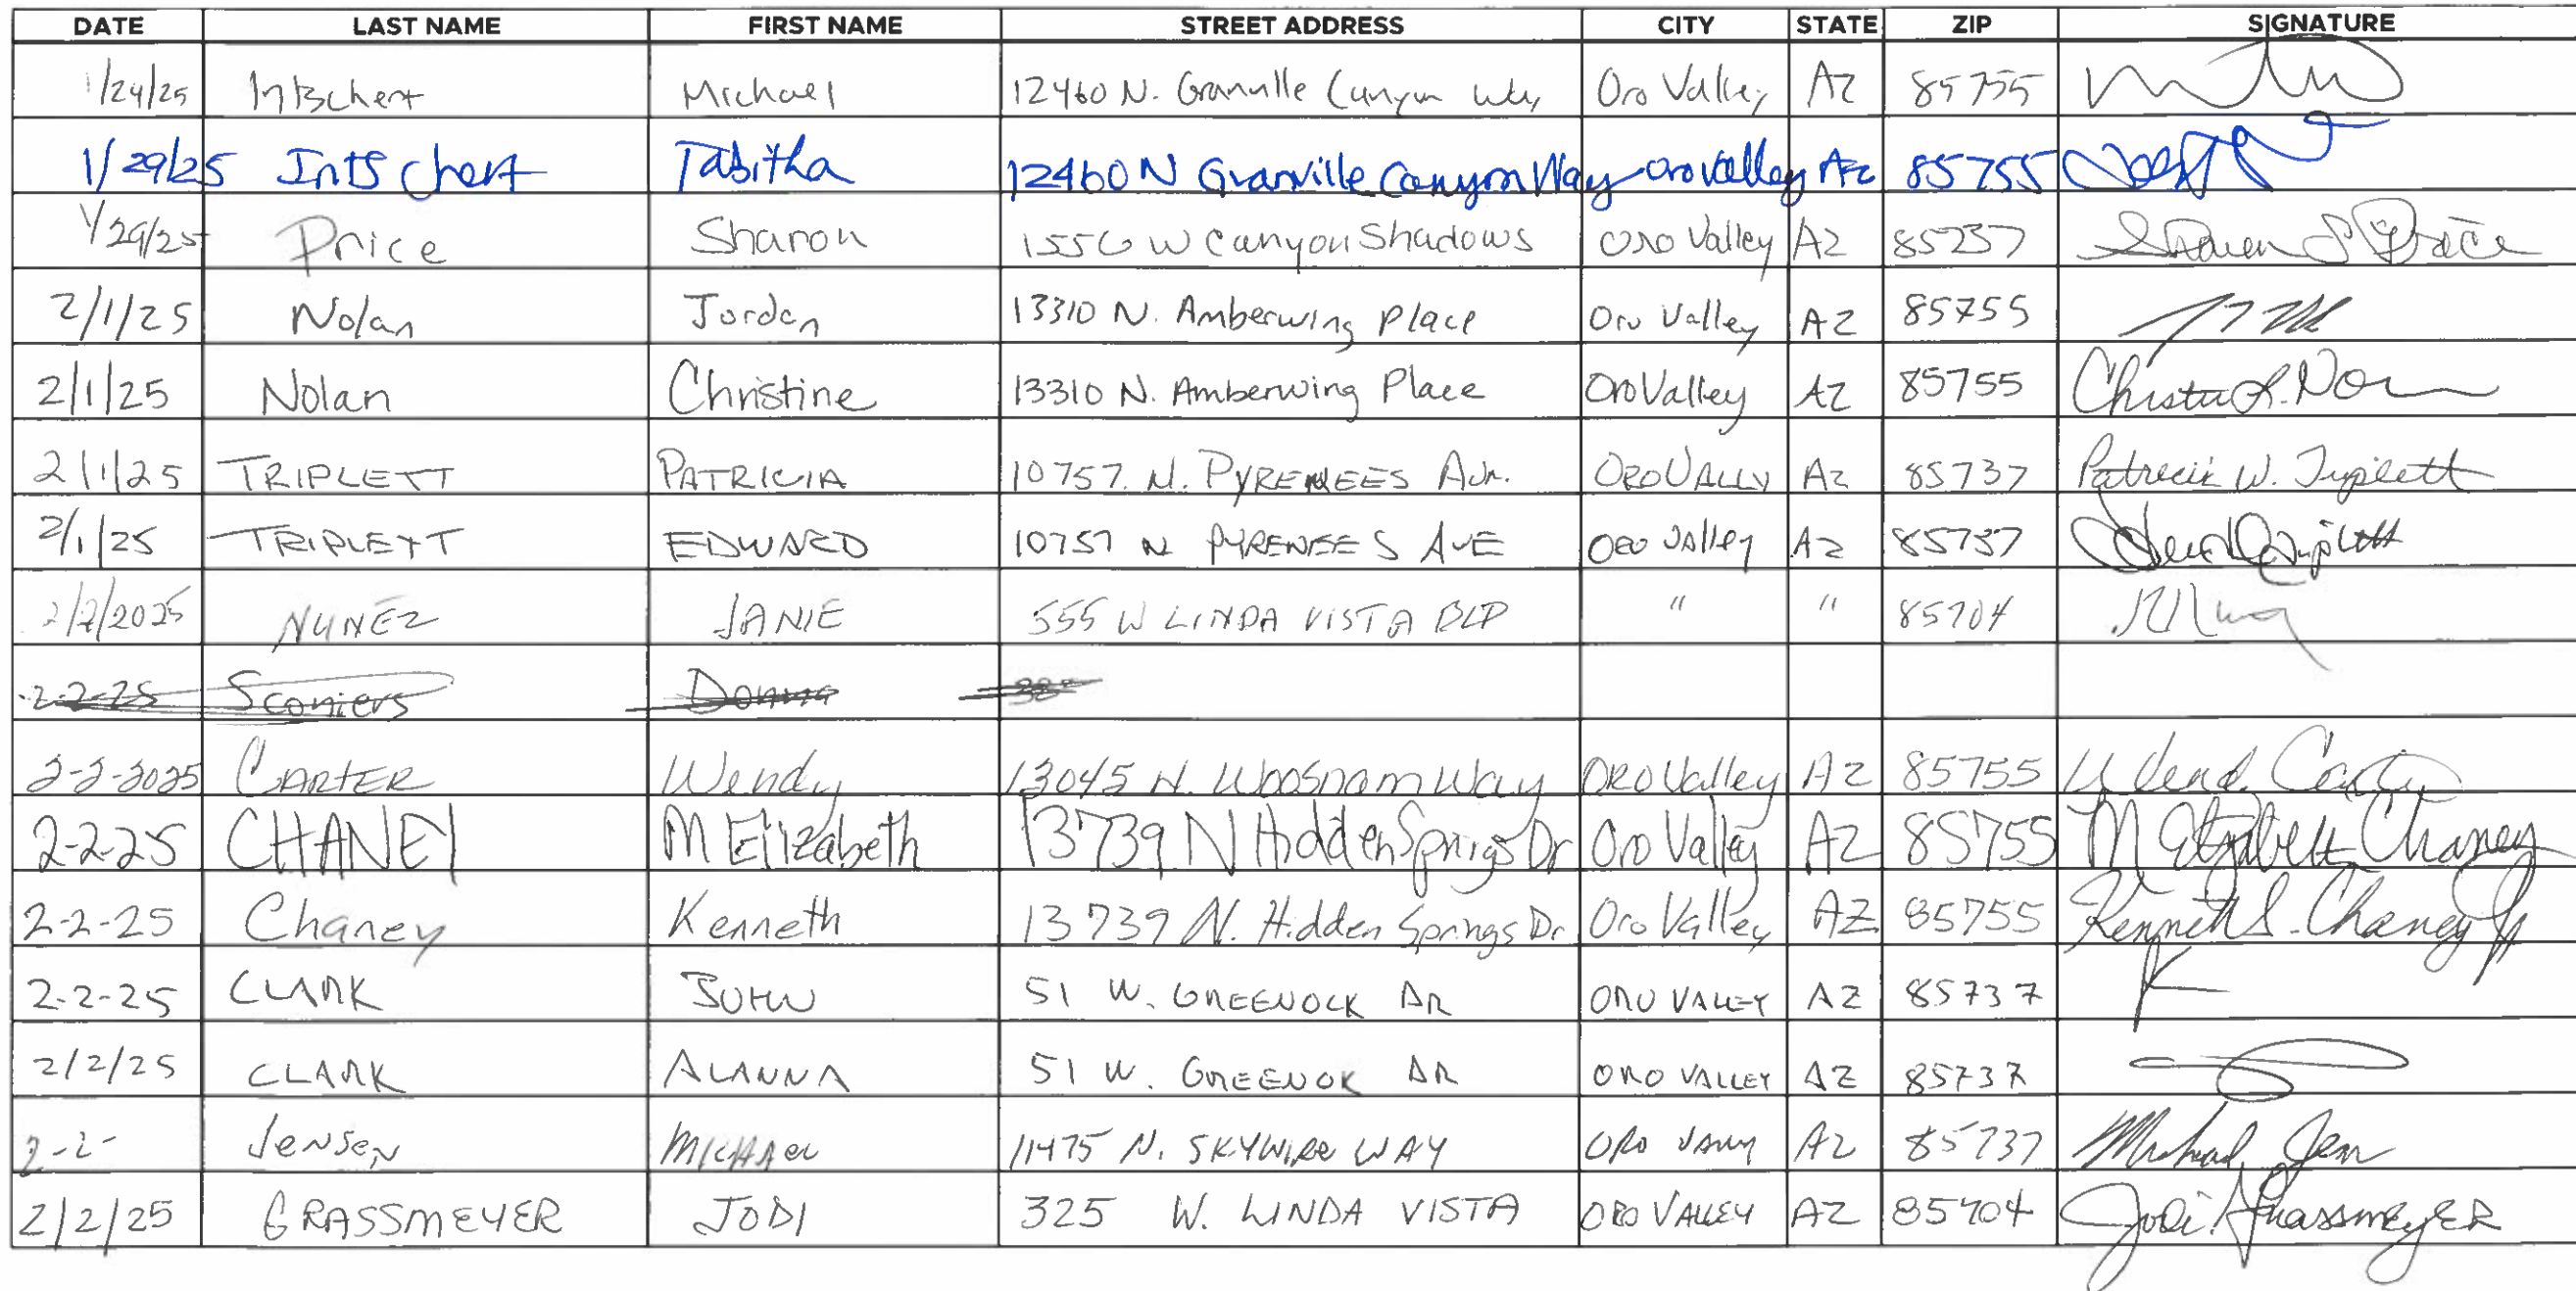 DATE LAST NAME FIRST NAME STREET ADDRESS CITY STATE ZIP SIGNATURE
1/24/25 Intschert Michael 12460 N. Granville Canyon Way Oro Valley AZ 85755
1/29/25 Intschert Tabitha 12460 N Granville Canyon Way Oro Valley Az 85755
1/29/25 Price Sharon 1550 W Canyon Shadows Oro Valley AZ 85737 Sharon S Price
2/1/25 Nolan Jordan 13310 N. Amberwing Place Oro Valley AZ 85755
2/1/25 Nolan Christine 13310 N. Amberwing Place Oro Valley AZ 85755
2/1/25 TRIPLETT PATRICIA 10757 N. PYRENEES Ave. ORO VALLY AZ 85737 Patricia W. Triplett
2/1/25 TRIPLETT EDWARD 10757 N PYRENEES AVE Oro Valley Az 85737
2/2/2025 NUNEZ JANIE 555 W LINDA VISTA BLD " " 85704
2-2-25 Sconiers Donna
2-2-2025 CARTER Wendy 13045 N. Woosnam Way ORO Valley AZ 85755 Wendy Carter
2-2-25 CHANEY M Elizabeth 13739 N Hidden Springs Dr Oro Valley AZ 85755 M Elizabeth Chaney
2-2-25 Chaney Kenneth 13739 N. Hidden Springs Dr Oro Valley AZ 85755 Kenneth S. Chaney Jr
2-2-25 CLARK JOHN 51 W. GREENOCK DR ORO VALLEY AZ 85737
2/2/25 CLARK ALANNA 51 W. GREENOK DR ORO VALLEY AZ 85737
2-2- JENSEN MICHAEL 11475 N. SKYWIRE WAY ORO AZ 85737 Michael Jen
2/2/25 GRASSMEYER JODI 325 W. LINDA VISTA ORO VALLEY AZ 85704 Jodi GrassmeyER